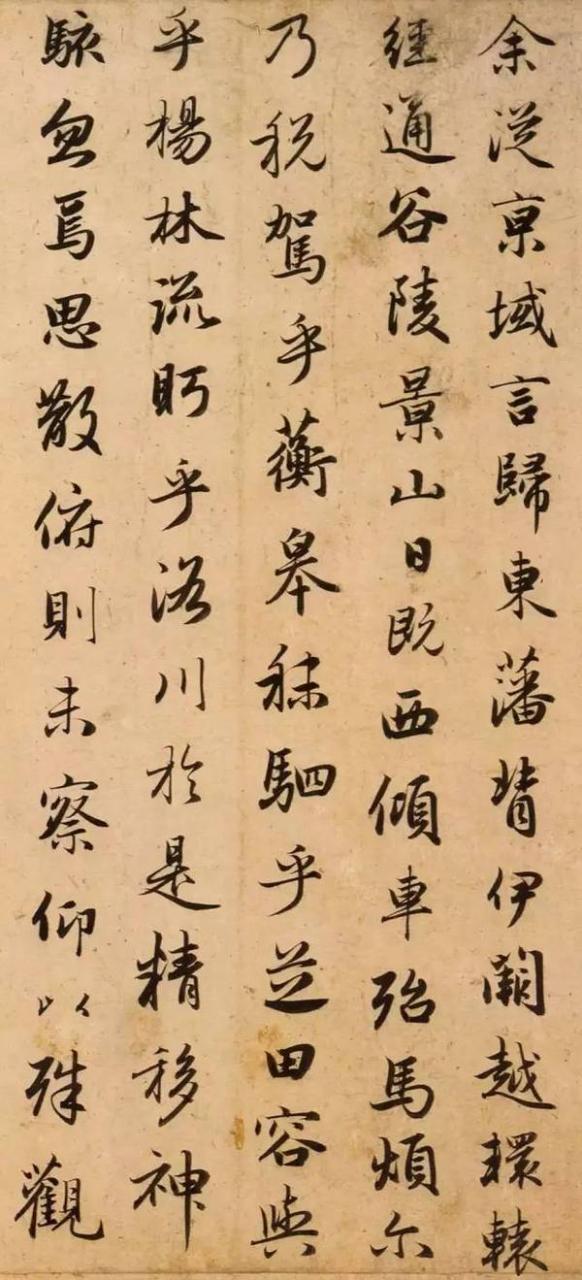 余從京域言歸東藩背伊闕越轘轅
經通谷陵景山日既西傾車殆馬煩尔
乃稅駕乎蘅皋秣駟乎芝田容與
乎楊林流眄乎洛川於是精移神
駭忽焉思散俯則未察仰以殊觀